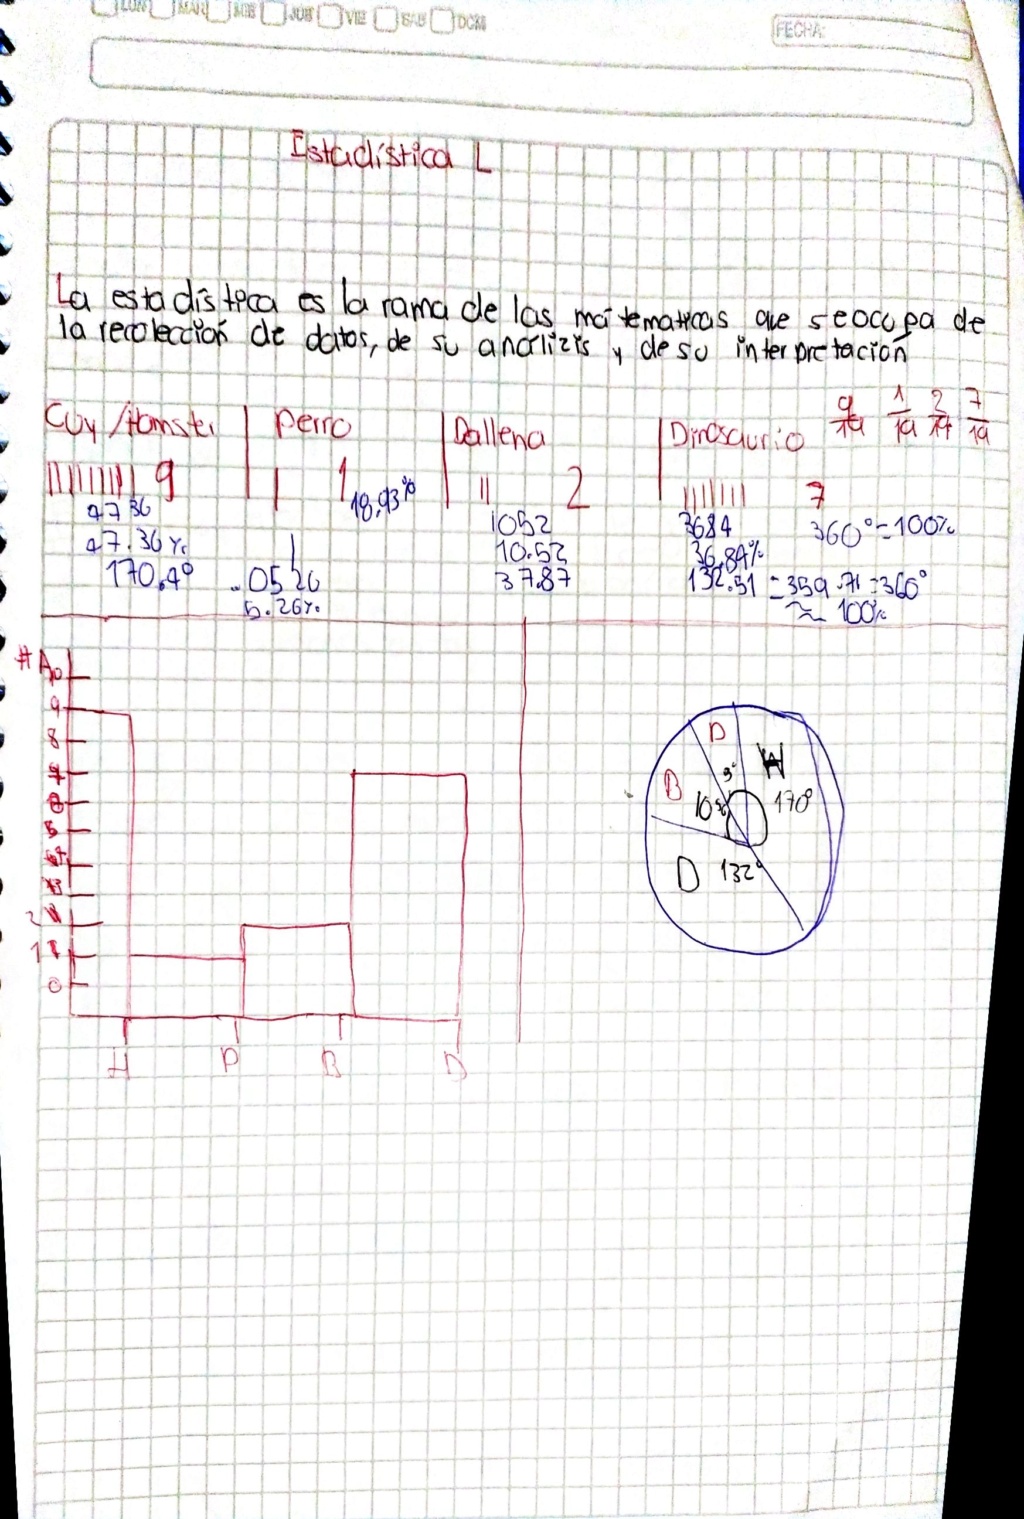 LUN MAR MIE JUE VIE SAB DOM
FECHA:
Estadística L
La estadística es la rama de las matematicas que se ocupa de
la recolección de datos, de su analizis y de su interpretación
Cuy /Hamster perro Ballena Dinosaurio 9/19 1/19 2/19 7/19
9 1 18.93% 2 7
4736 1052 3684 360°=100%
47.36% 10.52 36.84%
170.4° .0526 37.87 132.51 =359.71=360°
5.26% ≈ 100%
#A
10
9
8
7
6
5
4
3
2
1
0
H P B D
P H
B 170°
D 132°